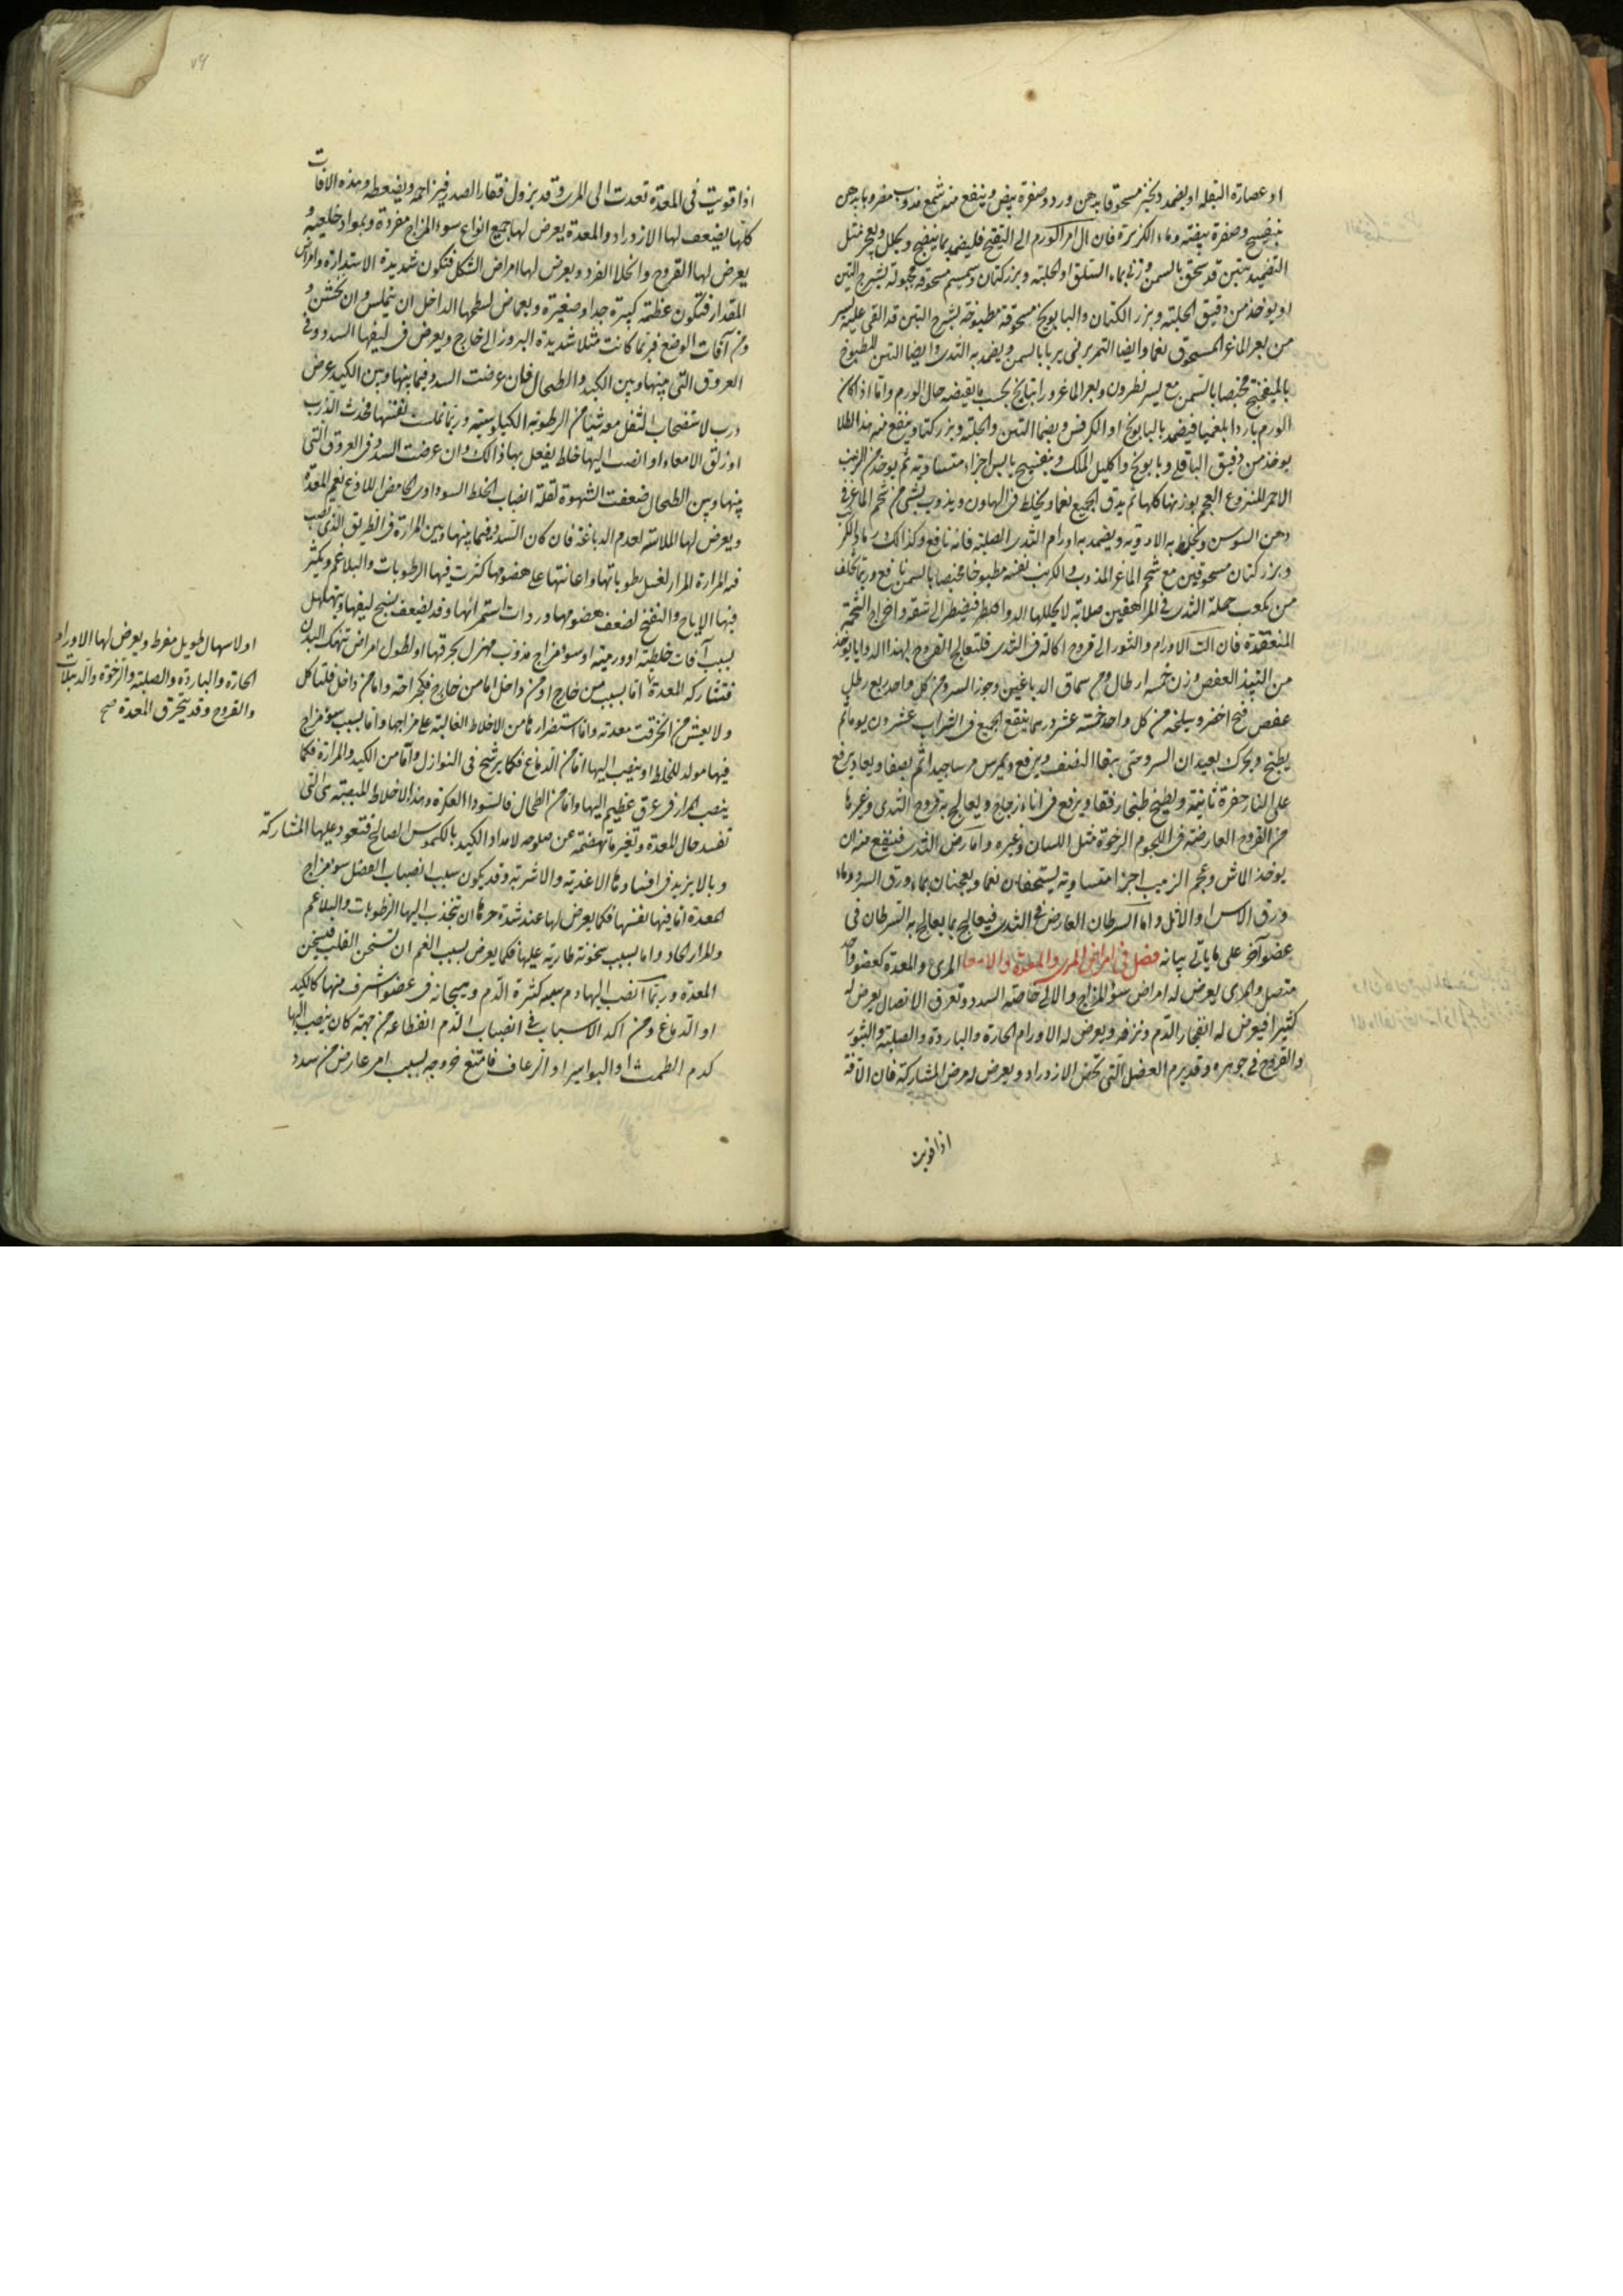 او عصارة البقلة او يضمد بخبز مسحوقا بدهن ورد وصفرة بيض وينفع منه شمع مذوب مضروبا بدهن
بنفسج وصفرة بيضة وماء الكزبرة فان ال امر الورم الى التقيح فليضمد بما ينضج ويحلل ويفجر مثل
التضميد بتين قد سحق بالسمن وزفت بماء السلق او الحلبة وبزر كتان وسمسم مسحوقة مجبولة بشيرج التين
او يوخذ من دقيق الحلبة وبزر الكتان والبابونج مسحوقة مطبوخة بشيرج التين قد القى عليه يسير
من بعر الماعز المسحوق نعما وايضا التمر يربى بالسمن ويضمد به الثدى وايضا التين المطبوخ
بالميفختج مخبصا بالسمن مع يسير نطرون وبعر الماعز وراتيانج بحسب ما يقتضيه حال الورم واما اذا كان
الورم باردا بلغميا فيضمد بالبابونج او الكرفس وبضماد التين والحلبة وبزر كتان وينفع منه هذا الطلا
يوخذ من دقيق الباقلى وبابونج واكليل الملك وبنفسج يابس اجزاء متساوية ثم يوخذ من الزبيب
الاحمر المنزوع العجم بوزنها كلها ثم يدق الجميع نعما ويخلط فى الهاون ويذوب بشى من شحم الماعز فى
دهن السوسن ويخلط به الادوية ويضمد به اورام الثدى الصلبة فانه نافع وكذالك رماد الكرنب
وبزر كتان مسحوقين مع شحم الماعز المذوب والكرنب نفسه مطبوخا مخبصا بالسمن نافع وربما تخلف
من تكعب حملة الثدى فى المراهقين صلابة لا يحللها الدوا فيضطر الى شقه واخراج الشحمة
المنعقدة فان الت الاورام والبثور الى قروح اكالة فى الثدى فلتعالج القروح بهذا الدوا يوخذ
من النبيذ العفص وزن خمسة ارطال ومن سماق الدباغين وجوز السرو من كل واحد ربع رطل
عفص فج اخضر وسليخه من كل واحد خمسة عشر درهما ينقع الجميع فى الشراب عشرون يوما ثم
يطبخ ويحرك بعيدان السرو حتى يبقا النصف ويرفع ويمرس مرسا جيدا ثم يصفا ويعاد يرفع
على النار حفرة ثانية ويطبخ طبخا رفقا ويرفع فى اناء زجاج ويعالج به قروح الثدى وغيرها
من القروح العارضة فى اللحوم الرخوة مثل اللسان وغيره واما رض الثدى فينفع منه ان
يوخذ الماش وعجم الزبيب اجزا متساوية يسحقان نعما ويعجنان بماء ورق السرو وماء
ورق الاس او الاثل واما السرطان العارض فى الثدى فيعالج بما يعالج به السرطان فى
عضو آخر على ما ياتى بيانه فصل فى امراض المرى والمعدة والامعا المرى والمعدة كعضو واحد
متصل والمرى يعرض له امراض سؤ المزاج والالى خاصة السدد وتفرق الاتصال يعرض له
كثيرا فيعرض له انفجار الدم ونزفه ويعرض له الاورام الحارة والباردة والصلبة والبثور
والقروح فى جوهره وقد يرم العضل التى تخص الازدراد ويعرض له مرض المشاركة فان الافة
اذا قويت
٧٩
اذا قويت فى المعدة تعدت الى المرى وقد يزول فقار الصدر فيزاحمه ويضغطه وهذه الافات
كلها يضعف لها الازدراد والمعدة يعرض لها جميع انواع سوء المزاج مفردة وبمواد خلطيه و
يعرض لها القروح وانحلا الفرد ويعرض لها امراض الشكل فتكون شديدة الاستدارة وامراض
المقدار فتكون عظيمة كبيرة جدا وصغيرة ويعرض لسطحها الداخل ان يتملس وان يخشن و
من آفات الوضع فربما كانت مثلا شديدة البروز الى خارج ويعرض فى ليفها السدد وفى
العروق التى بينها وبين الكبد والطحال فان عرضت السدد فيما بينها وبين الكبد عرض
ذرب لاستصحاب الثفل معه شيئا من الرطوبة الكيلوسية وربما تملست لنفسها فحدث الذرب
او زلق الامعاء او انصب اليها خلط يفعل بها ذالك وان عرضت السدد فى العروق التى
بينها وبين الطحال ضعفت الشهوة لقلة انصباب الخلط السوداوى الحامض اللاذع لفم المعدة
ويعرض لها الملاسة لعدم الدباغة فان كان السدد فيما بينها وبين المرارة فى الطريق الذى تصب
فيه المرارة المرار لغسل رطوباتها واعانتها على هضومها كثرت فيها الرطوبات والبلاغم ويكثر
فيها الارياح والنفخ لضعف هضومها وردات استمرائها وقد يضعف نسج ليفها ويتهلهل
بسبب آفات خلطية او ورمية او سؤ مزاج مذوب مهزل بحرقها او لطول امراض تنهك البدن
فتشاركه المعدة اما بسبب من خارج او من داخل اما من خارج فكجراحة واما من داخل فلتاكل
ولا يعيش من انخرقت معدته واما استضرارها من الاخلاط الغالبة على مزاجها واما بسبب سؤ مزاج
فيها مولد للخلط او ينصب اليها اما من الدماغ فكما يرشح فى النوازل واما من الكبد والمرارة فكما
ينصب المرار فى عرق عظيم اليها واما من الطحال فالسودا العكرة وهذه الاخلاط المنصبة هى التى
تفسد حال المعدة وتغير ما تهضمه عن صلوحه لامداد الكبد بالكيموس الصالح فتعود عليها المشاركة
وبالا يزيد فى افسادها الاغذية والاشربة وقد يكون سبب انصباب الفضل سؤ مزاج
المعدة اما فيها نفسها فكما يعرض لها عند شدة حرها ان تجذب اليها الرطوبات والبلاغم
والمرار الحاد واما بسبب سخونة طارية عليها فكما يعرض بسبب الغم ان تسخن القلب فيسخن
المعدة وربما انصب اليها دم سببه كثرة الدم وهيجانه فى عضو اشرف منها كالكبد
او الدماغ ومن اكد الاسباب فى انصباب الدم انقطاعه من جهة كان ينصب اليها
كدم الطمث او البواسير او الرعاف فامتنع خروجه بسبب امر عارض من سدد
او لاسهال طويل مفرط ويعرض لها الاورام
الحارة والباردة والصلبة والرخوة والدبيلات
والقروح وقد ينخرق المعدة صح